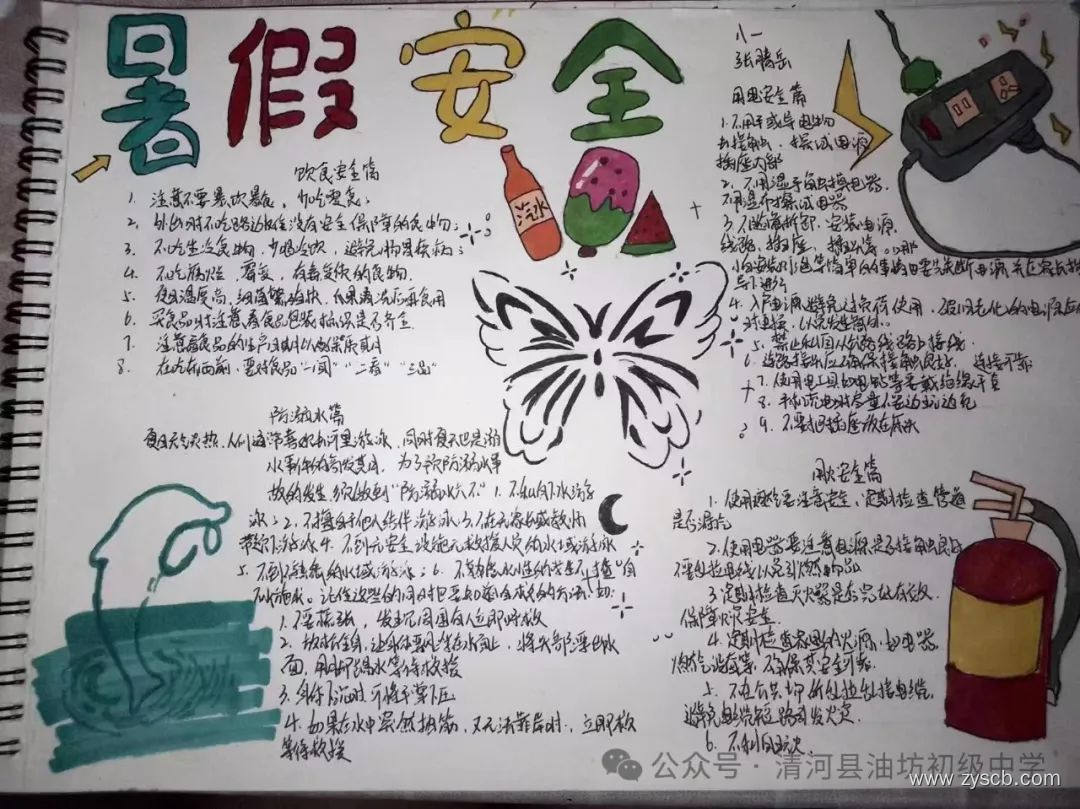 暑假安全
八一
张腾岳
饮食安全篇
1. 注意不要暴饮暴食,少吃零食;
2. 外出时不吃路边摊位没有安全保障的食物;
3. 不吃生冷食物,少喝冷饮,避免肠胃疾病;
4. 不吃腐烂、霉变、有毒变质的食物
5. 夏日温度高,细菌繁殖快,瓜果清洗后再食用
6. 买食品时注意看食品包装标识是否齐全
7. 注意看食品的生产日期以及保质期
8. 在吃东西前,要对食品“一闻”“二看”“三品”
汽水
防溺水篇
夏日天气炎热,人们通常喜欢去河里游泳,同时夏天也是溺
水事件的高发期,为了预防溺水事
故的发生,须做到“防溺水六不” 1. 不私自下水游
泳;2. 不擅自与他人结伴游泳 3. 不在无家长或教师
带领下游泳 4. 不到无安全设施无救援人员的水域游泳
5. 不到不熟悉的水域游泳;6. 不熟悉水性的学生不擅自
下水施救。
1. 不要慌张,发现周围有人立即呼救
2. 放松全身,让身体漂浮在水面上,将头部浮出水
面,用脚踢水等待救援
3. 身体下沉时,可将手掌下压
4. 如果在水中突然抽筋,又无法靠岸时,立即求救
等待救援
用电安全篇
1. 不用手或导电物
去接触、探试电源
插座内部
2. 不用湿手触摸电器,
不用湿布擦拭电器
3. 不随意拆卸、安装电源
线路、插座、插头等。哪
怕安装灯泡等简单的事情也要先关断电源,并在家长指
导下进行
5. 禁止私自从公路线路上接线
6. 
7. 使用电工具如电钻等要戴绝缘手套
8. 手机充电时尽量不要边玩边充
9. 不要将插座放在床
用火安全篇
1. 使用燃气要注意安全,定期检查管道
是否漏气
2. 使用电器要注意电源是否接触良好
不要乱拉电线以免引燃物品
3. 定期检查灭火器是否完好有效,
保障火灾安全.
4. 定期检查家里的火源,如电器、
燃气设施等,确保其安全可靠
5. 不在公共门厅乱拉乱接电缆,
避免电缆短路引发火灾.
6. 不私自玩火
公众号·清河县油坊初级中学
www.zyscb.com